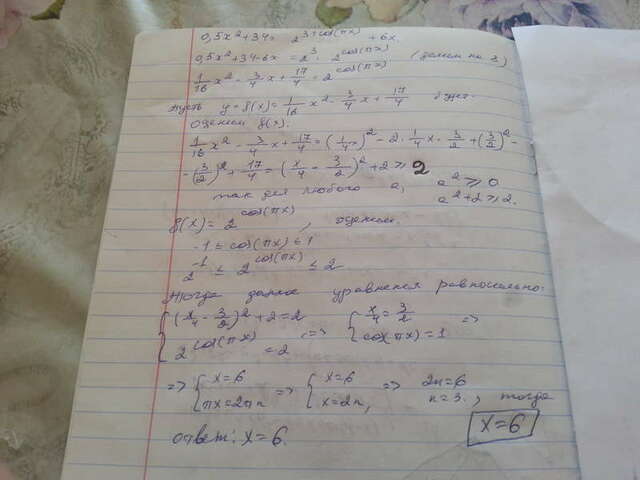 0,5x²+34 = 2^(3+cos(πx)) + 6x.
0,5x²+34-6x = 2³ · 2^cos(πx) (делим на 8)
1/16 x² - 3/4 x + 17/4 = 2^cos(πx)
y = f(x) = 1/16 x² - 3/4 x + 17/4
Оценим f(x):
1/16 x² - 3/4 x + 17/4 = (1/4 x)² - 2 · 1/4 x · 3/2 + (3/2)² -
- (3/2)² + 17/4 = (x/4 - 3/2)² + 2 ≥ 2
так для любого a, a² ≥ 0
a²+2 ≥ 2.
g(x) = 2^cos(πx), оценим
-1 ≤ cos(πx) ≤ 1
1/2 ≤ 2^cos(πx) ≤ 2
Тогда данное уравнение равносильно:
{ (x/4 - 3/2)² + 2 = 2 { x/4 = 3/2
{ 2^cos(πx) = 2 <=> { cos(πx) = 1 =>
=> { x=6 => { x=6 => 2n=6
{ πx=2πn { x=2n, n=3, тогда
x=6
Ответ: x=6.